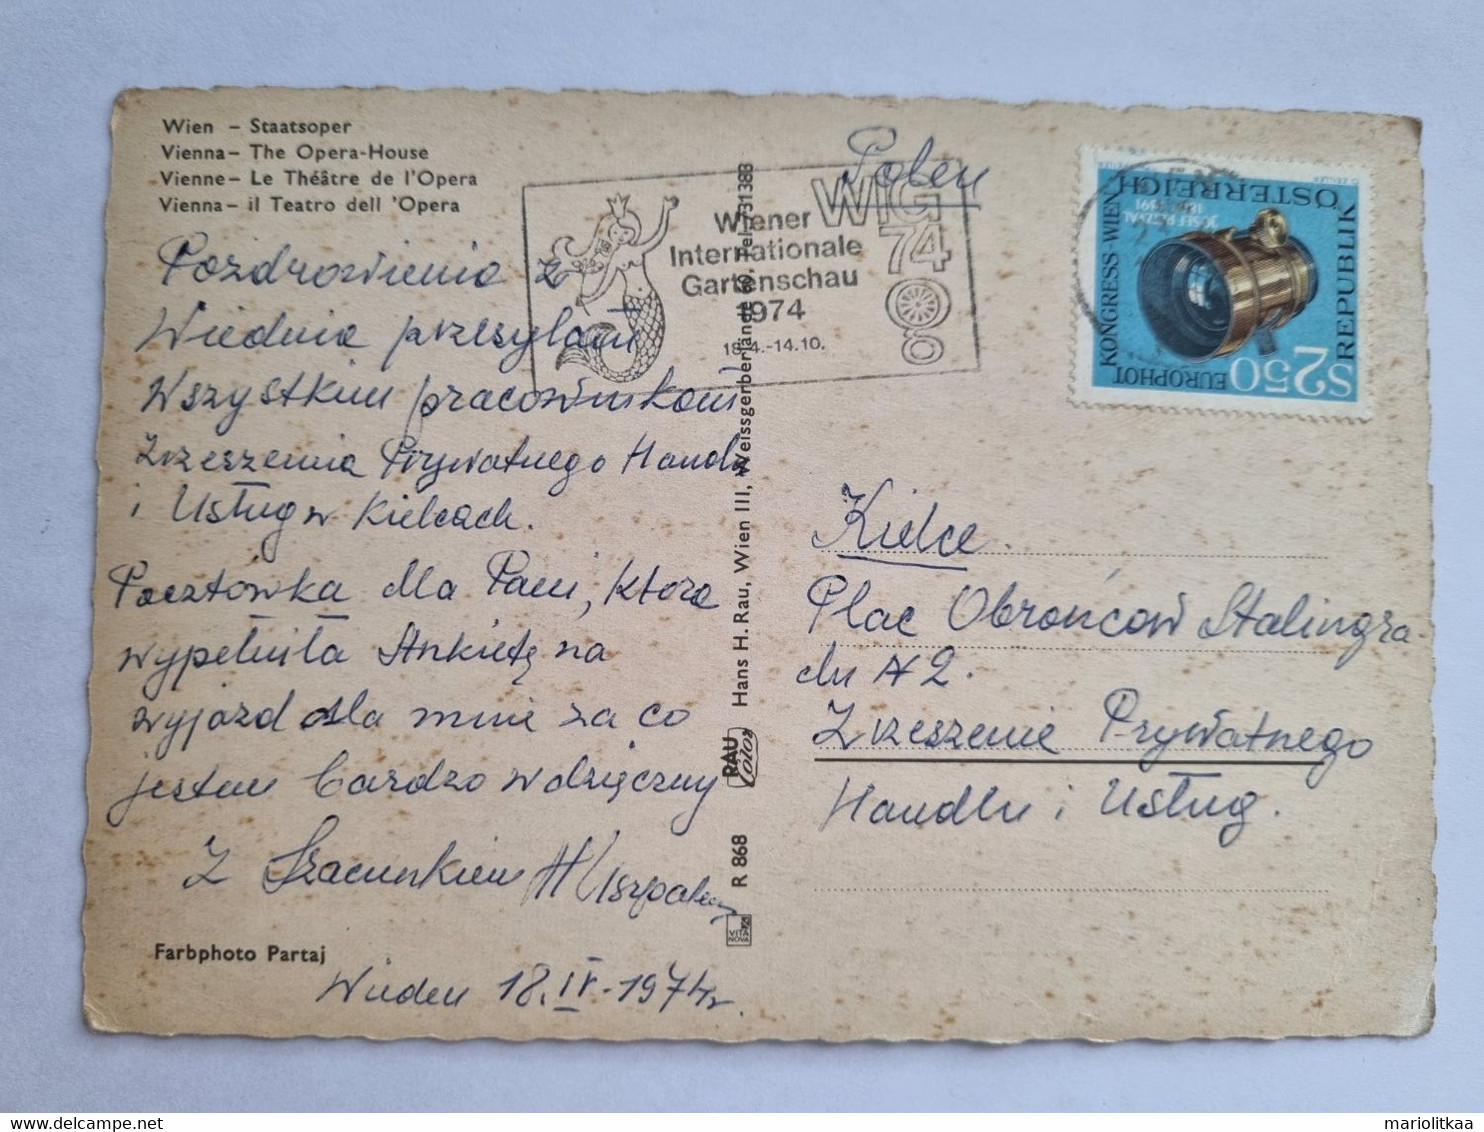 Wien – Staatsoper
Vienna – The Opera-House
Vienne – Le Théâtre de l'Opera
Vienna – il Teatro dell 'Opera
Pozdrowienia z
Wiednia przesyłam
Wszystkim pracownikom
Zrzeszenia Prywatnego Handlu
i Usług w Kielcach.
Pocztówka dla Pani, która
wypełniła Ankietę na
wyjazd dla mnie za co
jestem bardzo wdzięczny
Z Szacunkiem
Farbphoto Partaj
Wiedeń 18.IV.1974r.
Wiener
Internationale
Gartenschau
1974
18.4.-14.10.
WIG
74
Hans H. Rau, Wien III, Weissgerberlände 60, Tel. 731383
RAU
Color
R 868
VITA
NOVA
Polen
REPUBLIK
ÖSTERREICH
S2.50
EUROPHOT
KONGRESS WIEN
JOSEF PETZVAL
Kielce.
Plac Obrońców Stalingra-
du № 2.
Zrzeszenie Prywatnego
Handlu i Usług.
mariolitkaa